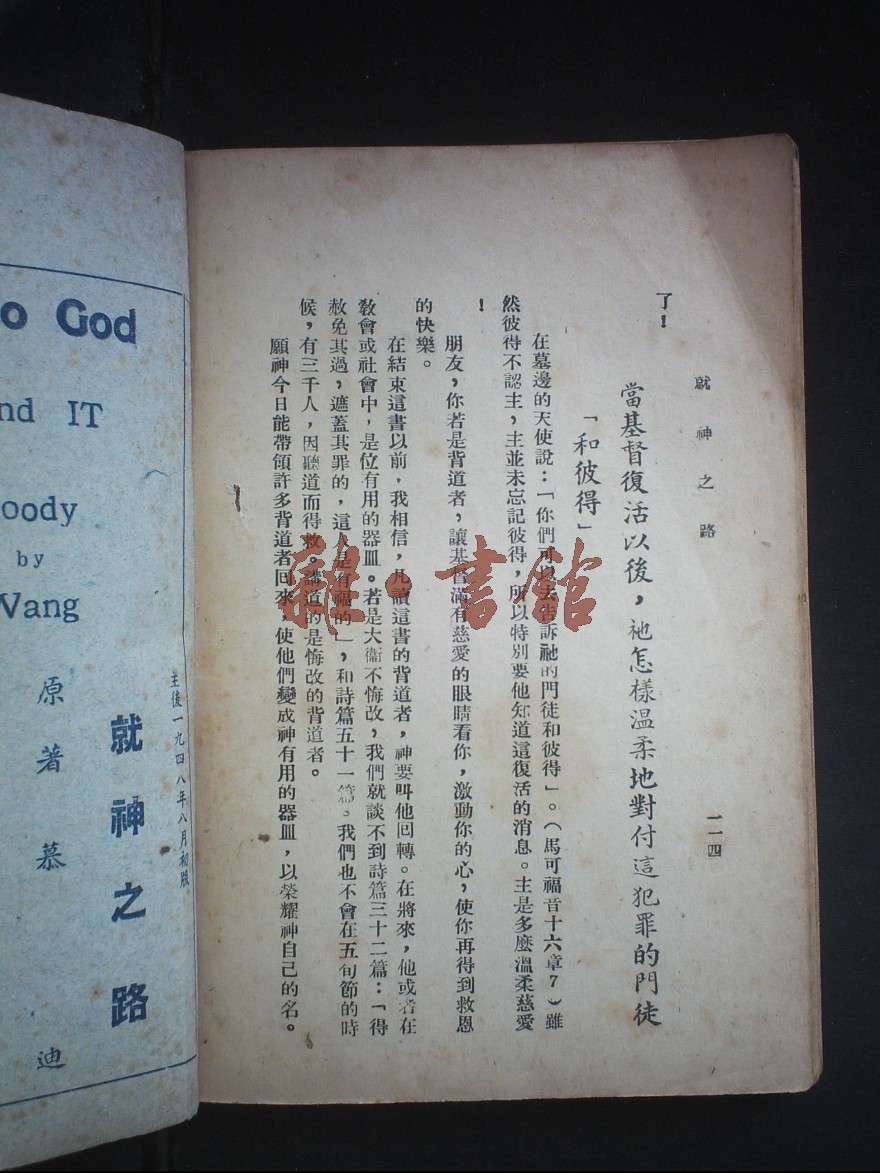 就神之路
一一四
了!
當基督復活以後,祂怎樣溫柔地對付這犯罪的門徒
「和彼得」
在墓邊的天使說:「你們可以去告訴祂的門徒和彼得」。(馬可福音十六章7)雖
然彼得不認主,主並未忘記彼得,所以特別要他知道這復活的消息。主是多麼溫柔慈愛
!
朋友,你若是背道者,讓基督滿有慈愛的眼睛看你,激動你的心,使你再得到救恩
的快樂。
在結束這書以前,我相信,凡讀這書的背道者,神要叫他回轉。在將來,他或者在
教會或社會中,是位有用的器皿。若是大衞不悔改,我們就談不到詩篇三十二篇:「得
赦免其過,遮蓋其罪的,這人是有福的」,和詩篇五十一篇。我們也不會在五旬節的時
候,有三千人,因聽道而得救。講道的是悔改的背道者。
願神今日能帶領許多背道者回來,使他們變成神有用的器皿,以榮耀神自己的名。
雜·書館
o God
nd IT
oody
by
Vang
主後一九四八年八月初版
就神之路
原著慕迪